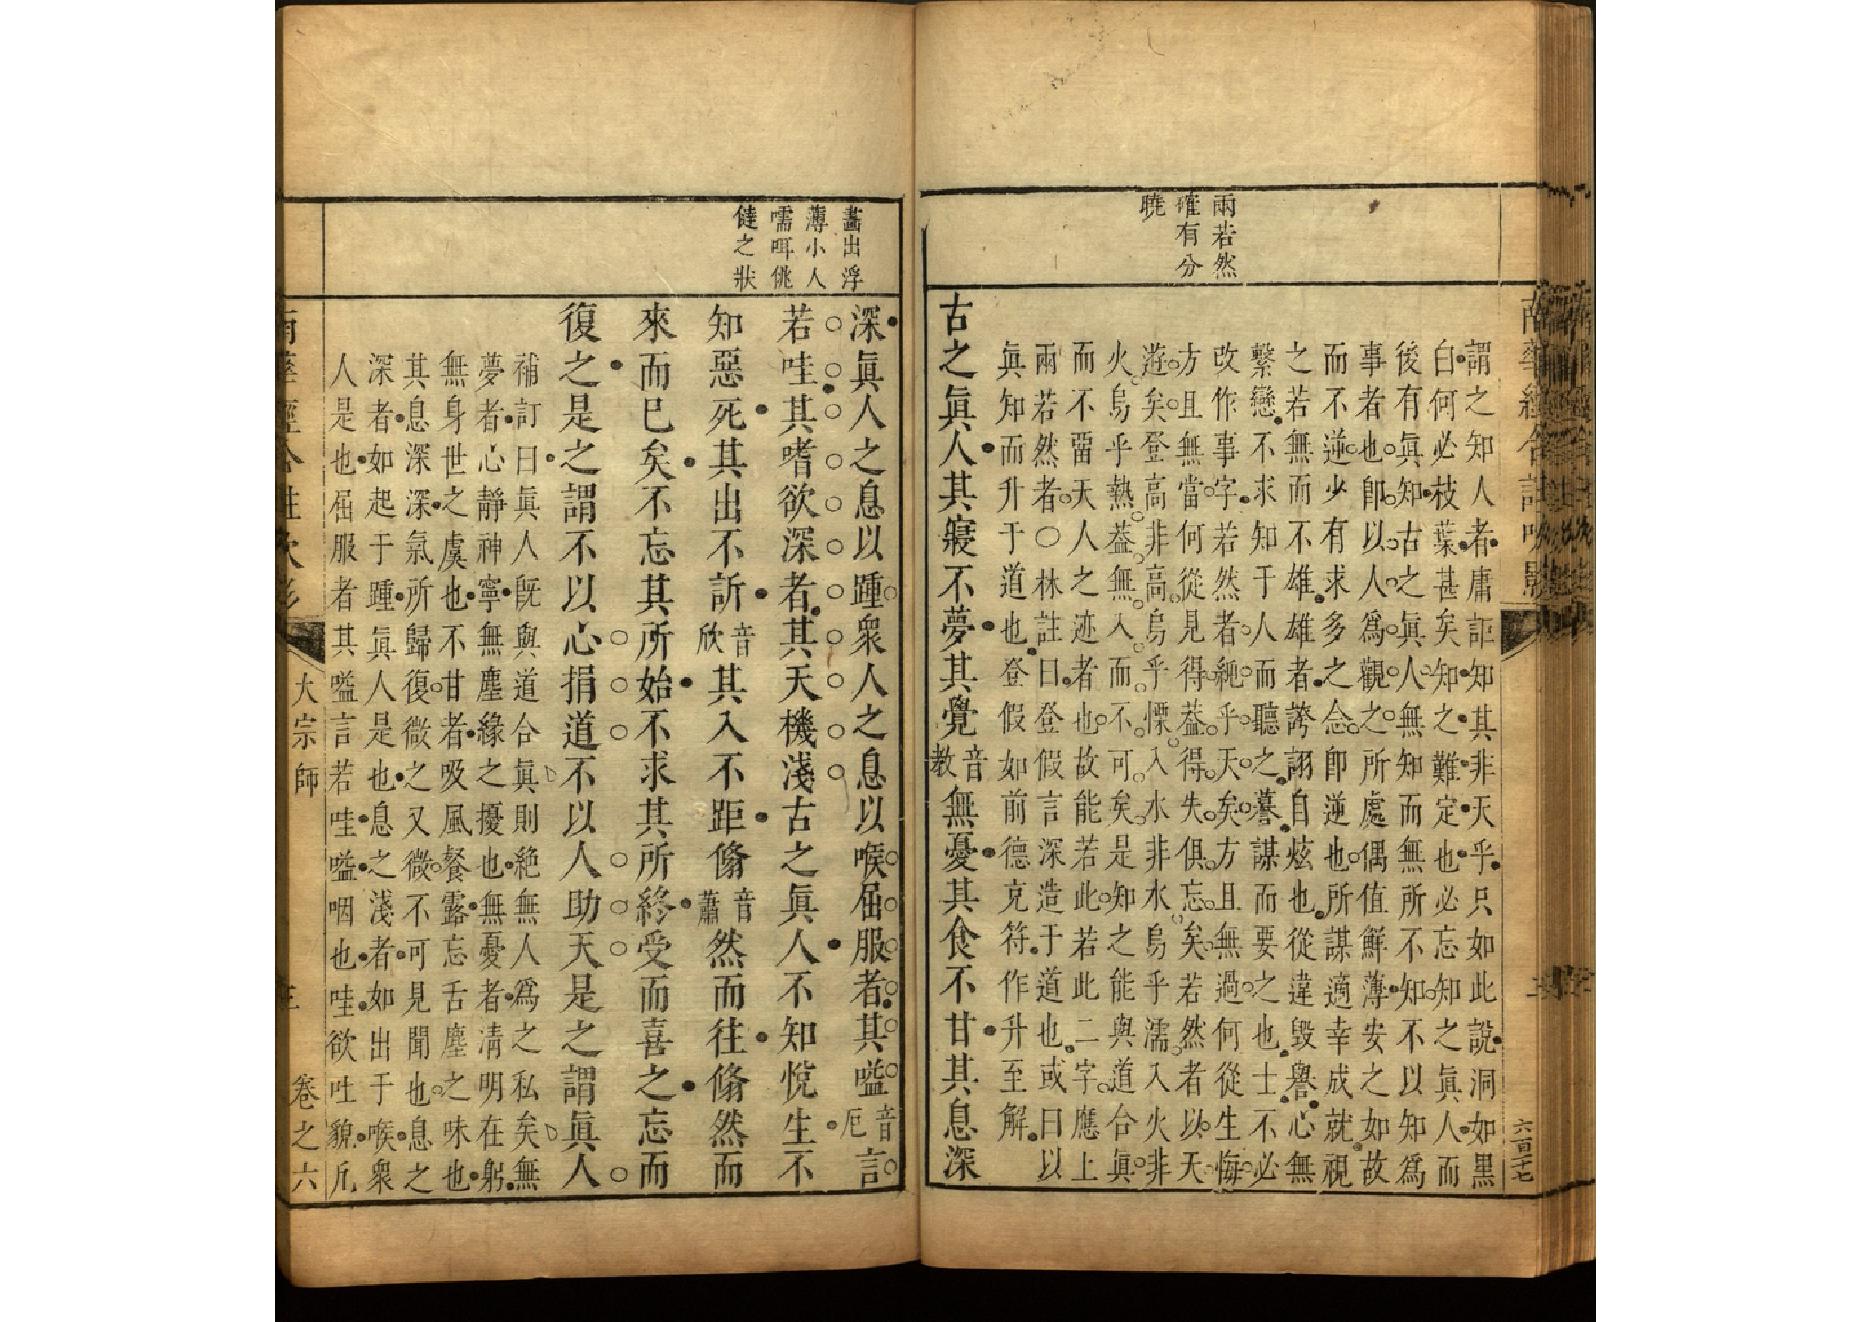 南華經合註吹影
六百十七
兩若然
確有分
曉
謂之知人者庸詎知其非天乎只如此說洞如黑
白何必枝葉甚矣知之難定也必忘知之眞人而
後有眞知古之眞人無知而無所不知不以知爲
事者也卽以人爲觀之所處偶值鮮薄安之如故
而不逆少有求多之念卽逆也所謀適幸成就視
之若無而不雄雄者誇詡自炫也從違毀譽心無
繫戀不求知于人而聽之謩謀而要之也士不必
改作事字若然者絶乎天矣方且無過何從生悔
方且無當何從見得葢得失俱忘矣若然者以天
遊矣登高非高烏乎慄入水非水烏乎濡入火非
火烏乎熱葢無入而不可矣是知之能與道合眞
而不畱天人之迹者也故能若此若此二字應上
兩若然者○林註曰登假言深造于道也或曰以
眞知而升于道也登假如前德充符作升至解
古之眞人其寢不夢其覺音教無憂其食不甘其息深
畵出浮
薄小人
嚅咡佻
㒓之狀
深眞人之息以踵衆人之息以喉屈服者其嗌音厄言
若哇其嗜欲深者其天機淺古之眞人不知悅生不
知惡死其出不訢音欣其入不距翛音蕭然而往翛然而
來而已矣不忘其所始不求其所終受而喜之忘而
復之是之謂不以心捐道不以人助天是之謂眞人
補訂曰眞人既與道合眞則絶無人爲之私矣無
夢者心靜神寧無塵緣之擾也無憂者清明在躬
無身世之虞也不甘者吸風餐露忘舌塵之味也
其息深深氣所歸復微之又微不可見聞也息之
深者如起于踵眞人是也息之淺者如出于喉衆
人是也屈服者其嗌言若哇嗌咽也哇欲吐貌凡
大宗師
卷之六